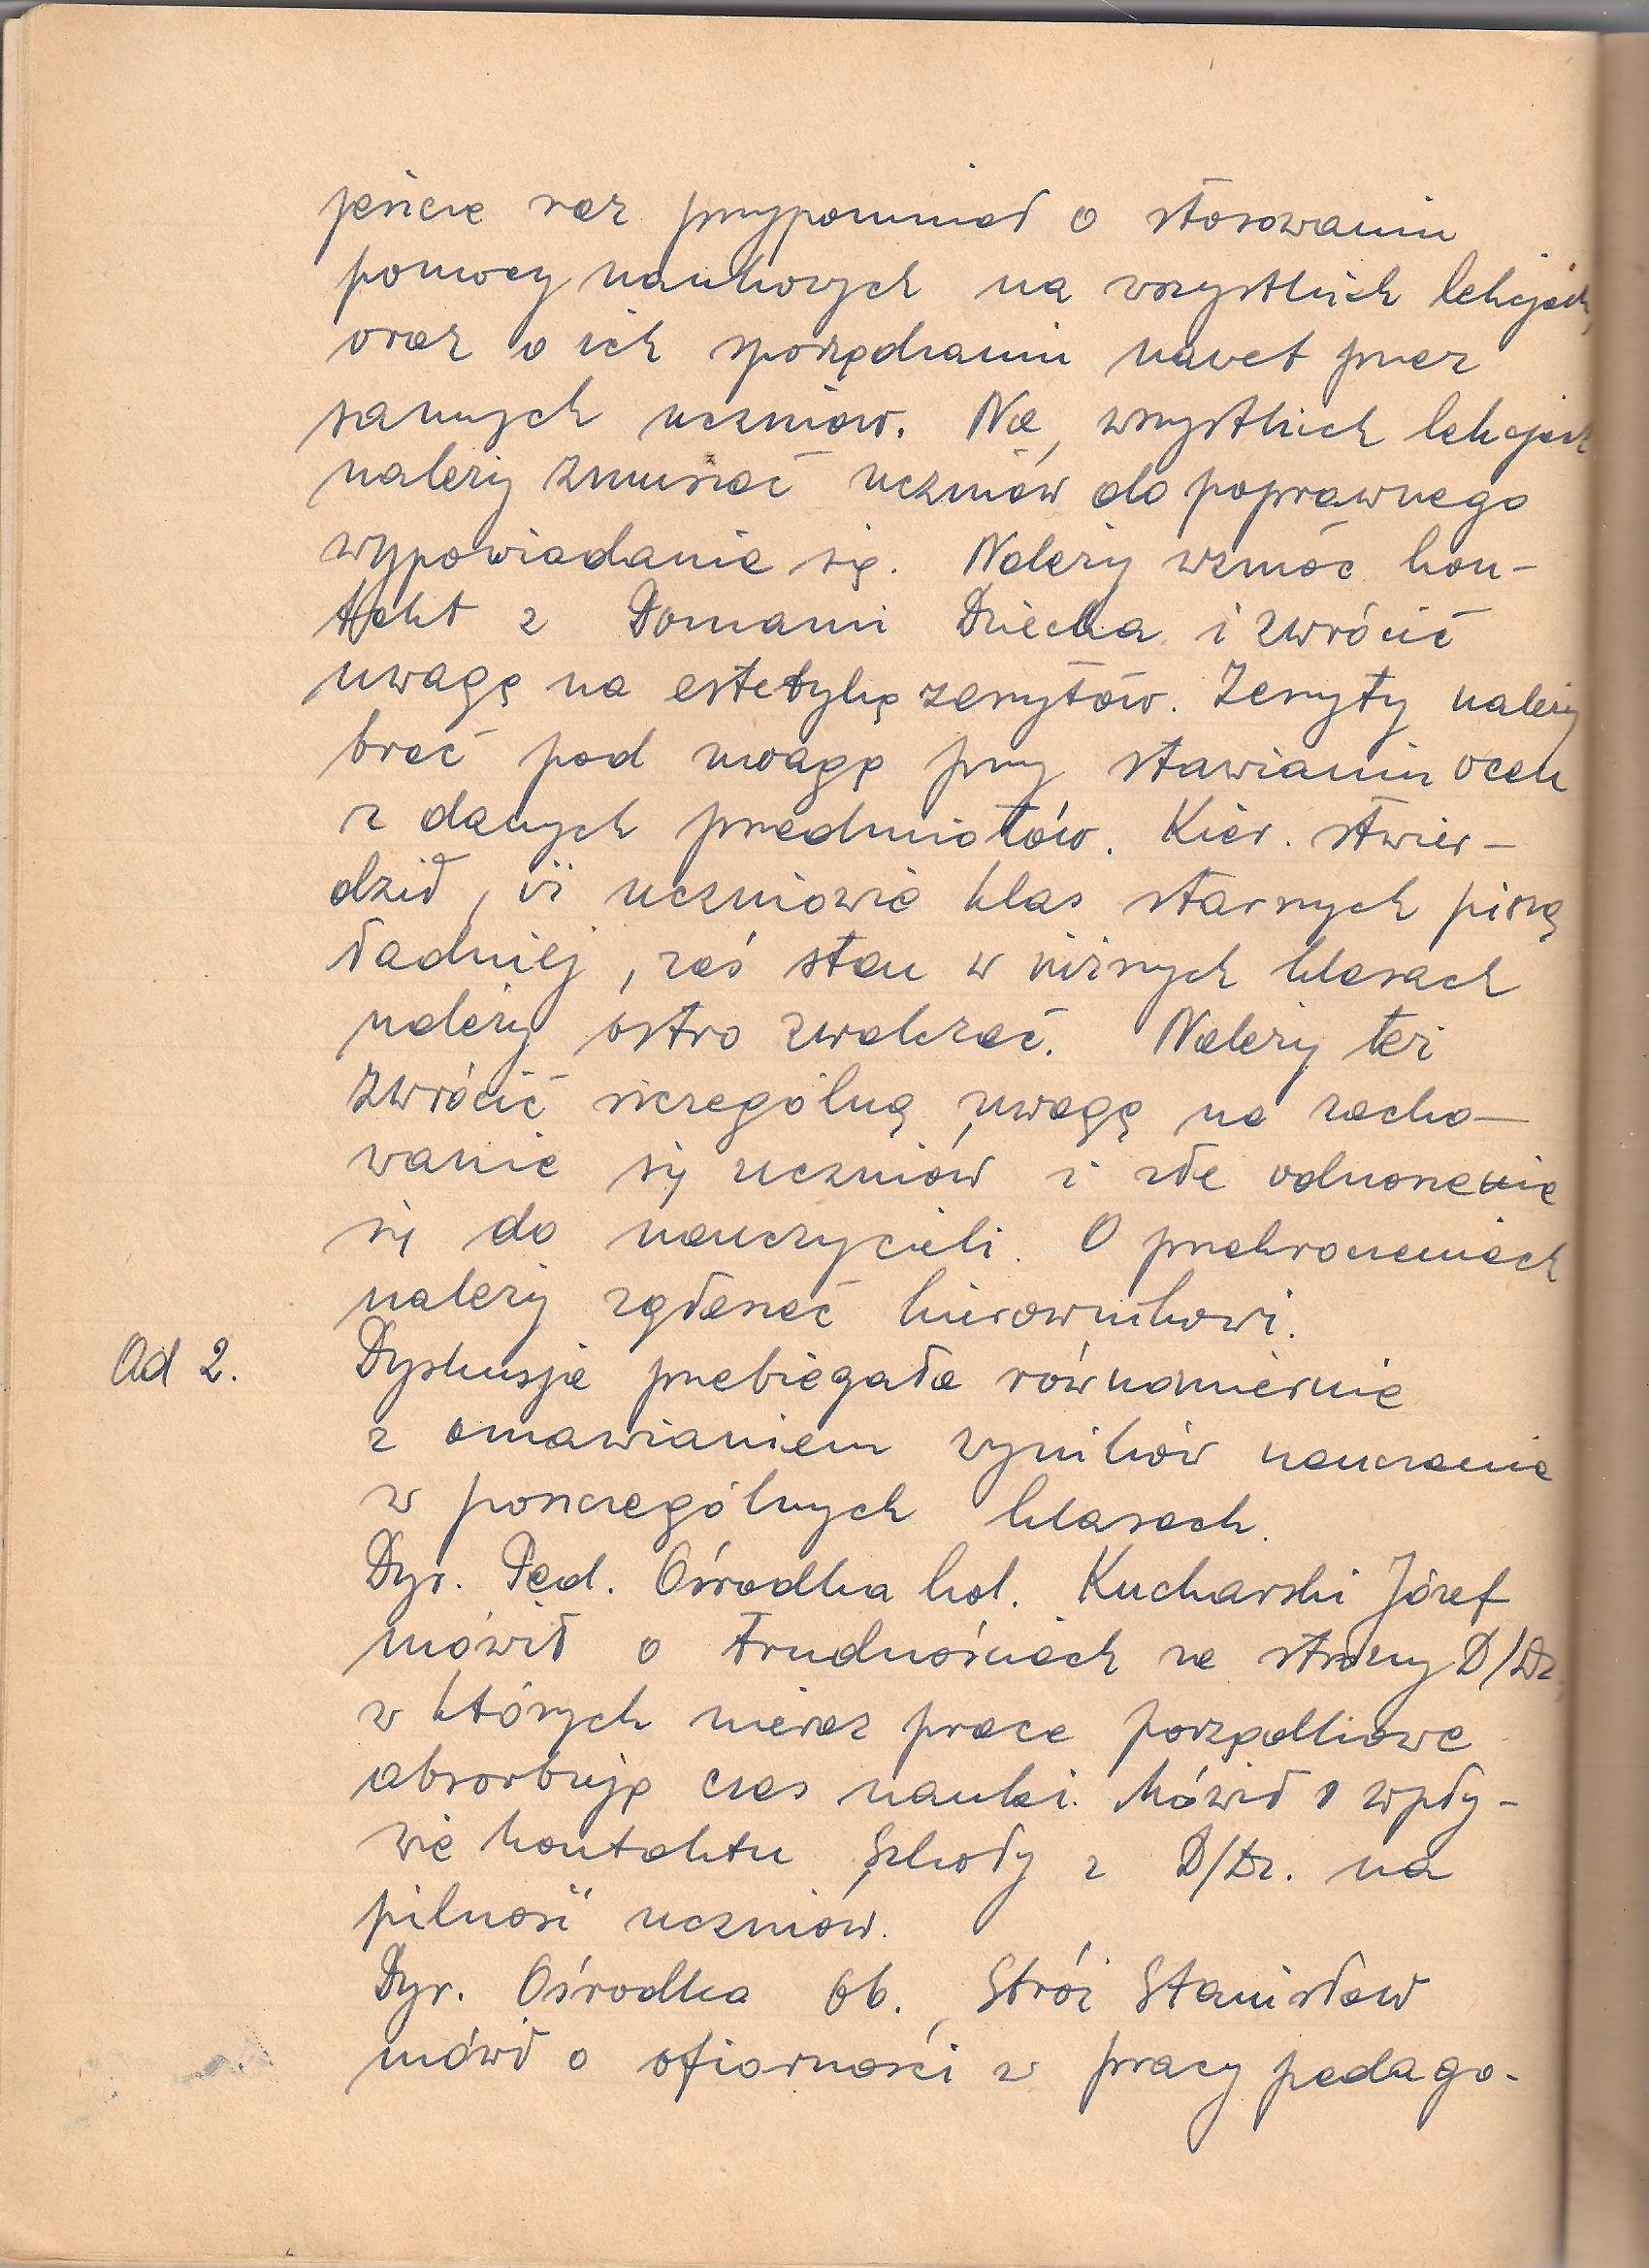 jeszcze raz przypomniał o stosowaniu
pomocy naukowych na wszystkich lekcjach,
oraz o ich sporządzaniu nawet przez
samych uczniów. Na wszystkich lekcjach
należy zmuszać uczniów do poprawnego
wypowiadania się. Należy wzmóc kon-
takt z Domami Dziecka i zwrócić
uwagę na estetykę zeszytów. Zeszyty należy
brać pod uwagę przy stawianiu ocen
z danych przedmiotów. Kier. stwier-
dził, iż uczniowie klas starszych piszą
ładniej, zaś stan w niższych klasach
należy ostro zwalczać. Należy też
zwrócić szczególną uwagę na zacho-
wanie się uczniów i złe odnoszenie
się do nauczycieli. O przekroczeniach
należy zgłaszać kierownikowi.
Ad 2. Dyskusja przebiegała równomiernie
z omawianiem wyników nauczania
w poszczególnych klasach.
Dyr. Ped. Ośrodka kol. Kucharski Józef
mówił o trudnościach ze strony D/Dz.
w których nieraz prace porządkowe
absorbują czas nauki. Mówił o wpły-
wie kontaktu Szkoły z D/Dz. na
pilność uczniów.
Dyr. Ośrodka ob. Stróż Stanisław
mówił o ofiarności w pracy pedago-